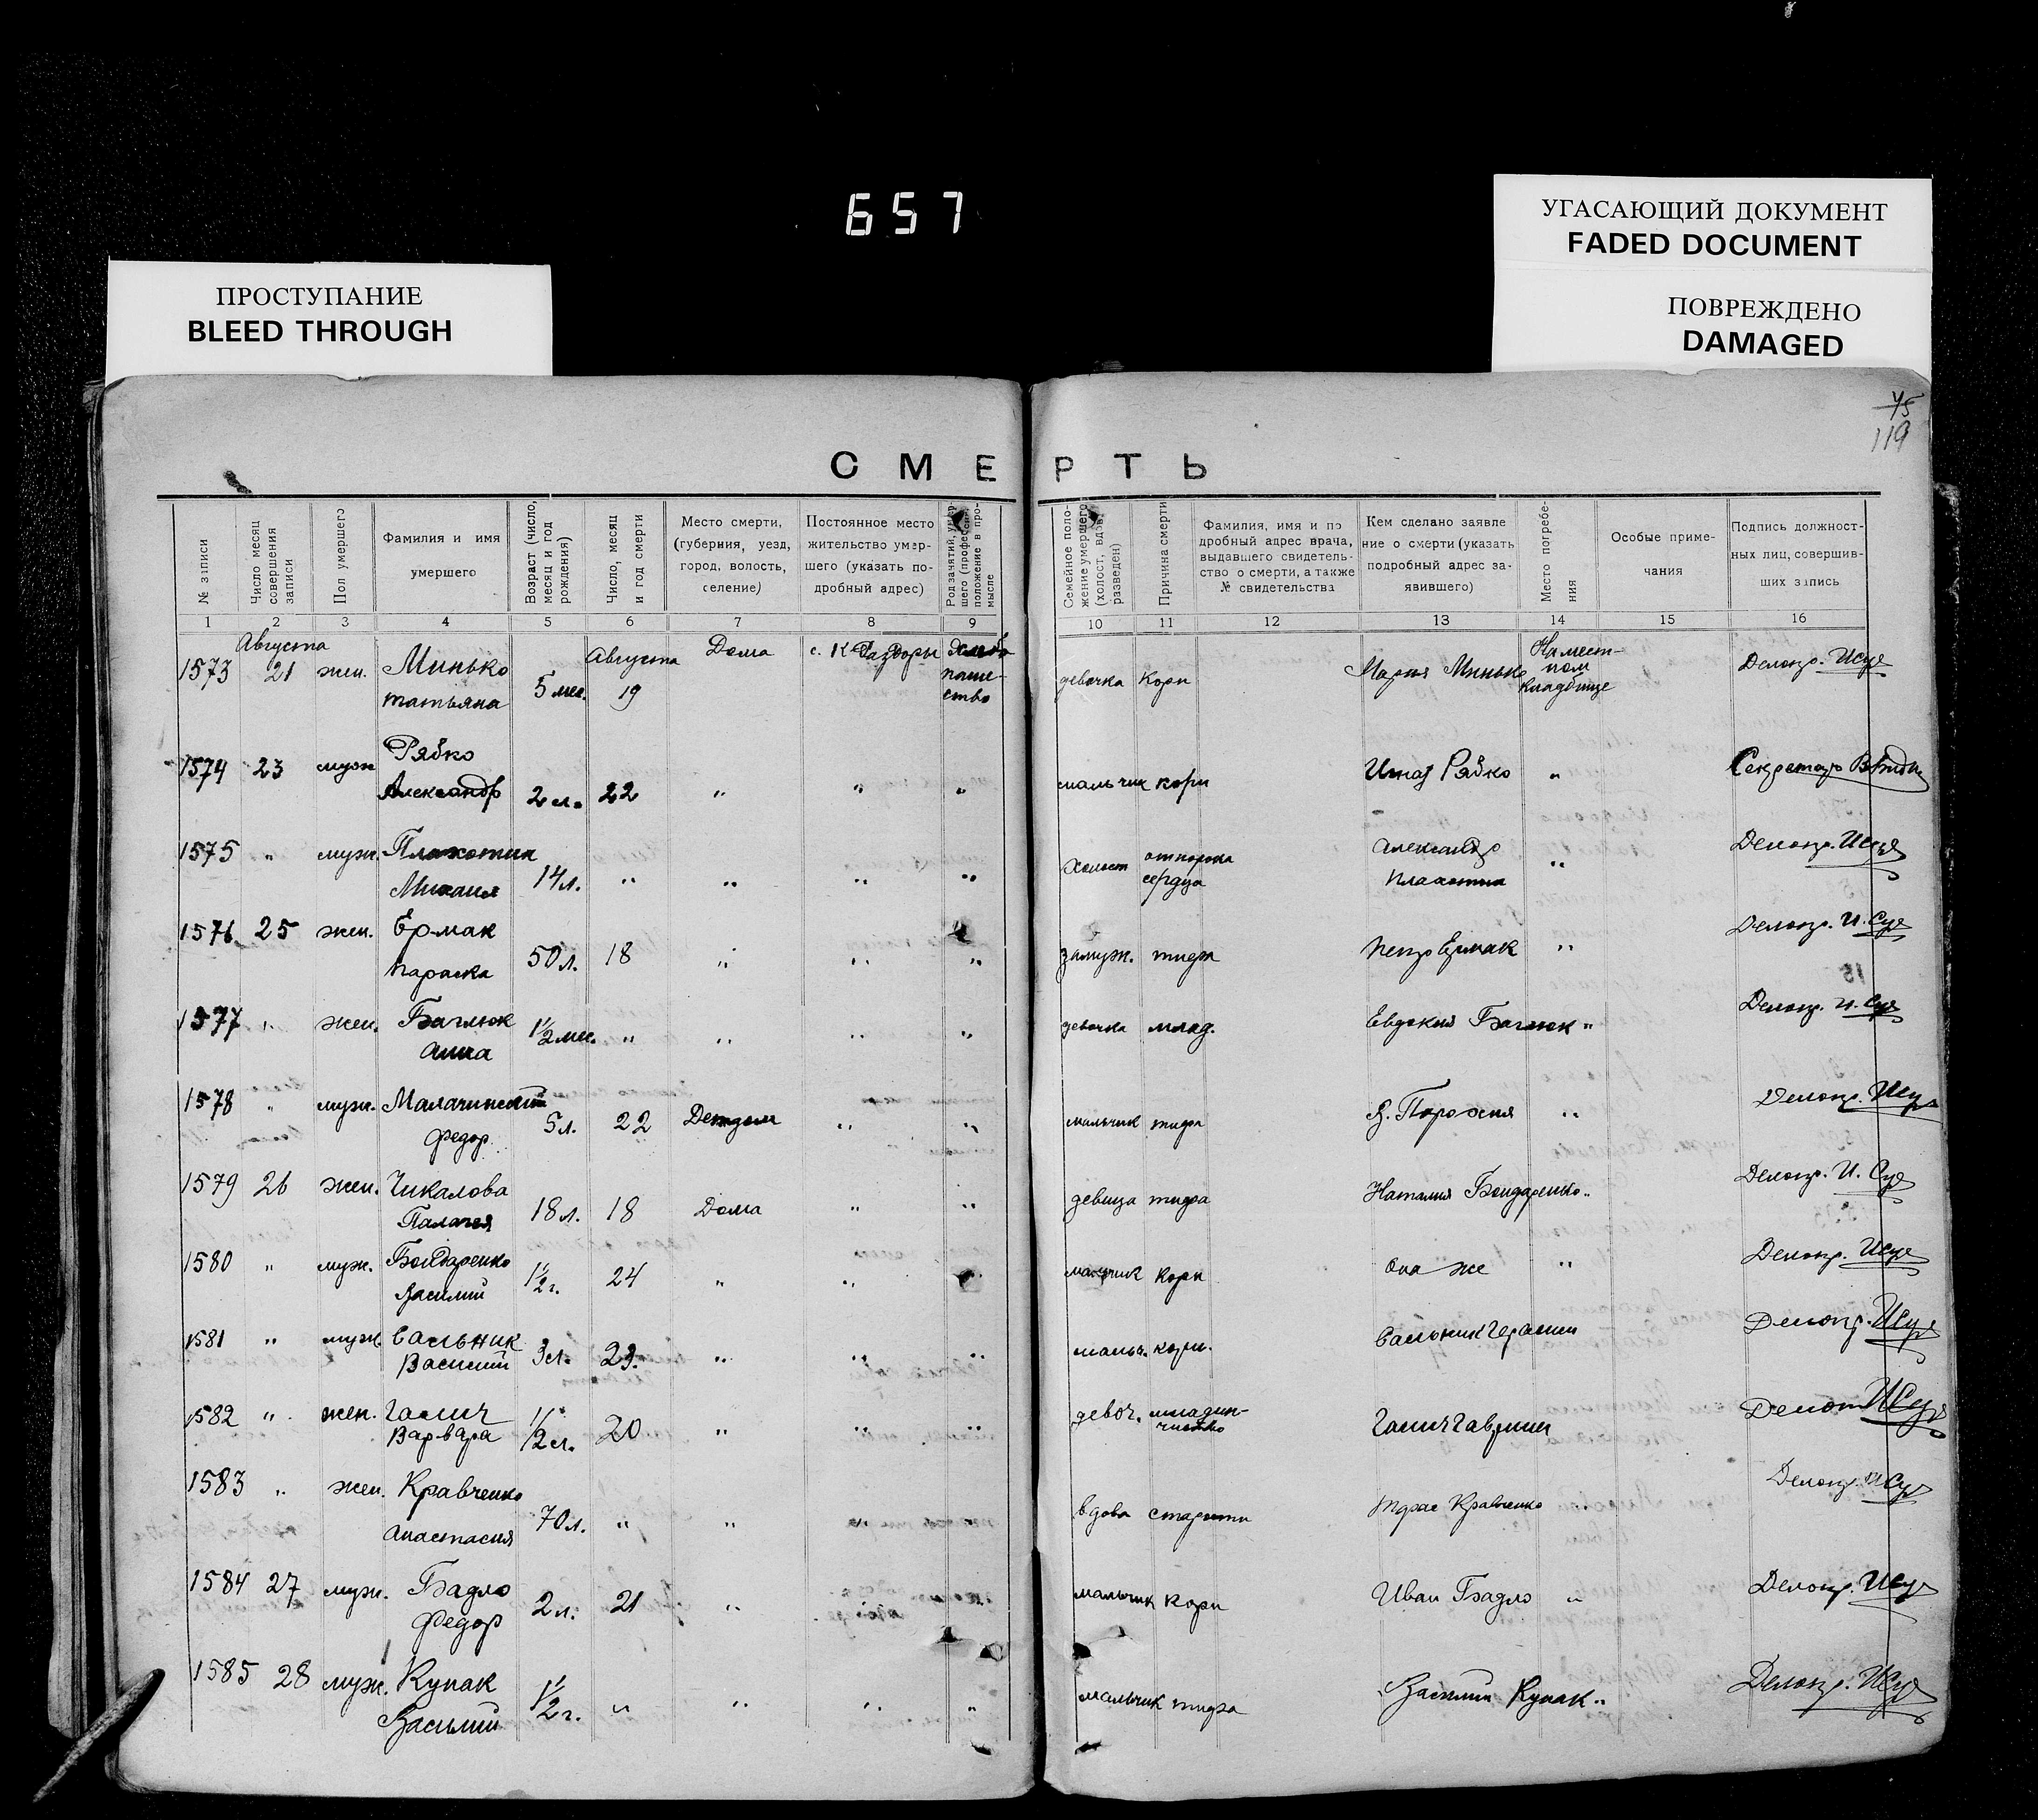 657
УГАСАЮЩИЙ ДОКУМЕНТ
FADED DOCUMENT
ПОВРЕЖДЕНО
DAMAGED
ПРОСТУПАНИЕ
BLEED THROUGH
45
119
СМЕРТЬ
№ записи
Число месяц совершения записи
Пол умершего
Фамилия и имя умершего
Возраст (число, месяц и год рождения)
Число, месяц и год смерти
Место смерти, (губерния, уезд, город, волость, селение)
Постоянное место жительство умершего (указать подробный адрес)
Род занятий, умершего (профессия, положение в промысле
Семейное положение умершего (холост, вдов, разведен)
Причина смерти
Фамилия, имя и подробный адрес врача, выдавшего свидетельство о смерти, а также № свидетельства
Кем сделано заявление о смерти (указать подробный адрес заявившего)
Место погребения
Особые примечания
Подпись должностных лиц, совершивших запись
1 2 3 4 5 6 7 8 9 10 11 12 13 14 15 16
Августа Августа
1573 21 жен. Минько Татьяна 5 мес. 19 Дома с. К Раздоры Хлебопашество девочка Кори Мария Минько На местном кладбище Делопр.
1574 23 муж Рябко Александр 2 л. 22 " " " мальчик кори Игнат Рябко " Секретарь
1575 " муж. Плахотик Михаил 14 л. " " " " Холост от порока сердца Александр " Делопр.
1576 25 жен. Ермак Параска 50 л. 18 " " " замуж. тифа Петр Ермак " Делопр.
1577 " жен. Баглюк Анна 1½ мес. " " " " девочка млад. Евдокия Баглюк " Делопр.
1578 " муж. Малачинский Федор 5 л. 22 Детдом " " мальчик тифа " Делопр.
1579 26 жен. Чикалова Палагея 18 л. 18 Дома " " девица тифа Наталия Бондаренко " Делопр.
1580 " муж. Бондаренко Василий 1½ г. 24 " " " мальчик Кори Она же " Делопр.
1581 " муж Сальник Василий 3 л. 23. " " " мальч. кори. Сальник Герасим Делопр.
1582 " жен. Галич Варвара ½ л. 20 " " " девоч. младенчество Галич Гавриил
1583 " жен. Кравченко Анастасия 70 л. " " " " вдова старости Кравченко " Делопр.
1584 27 муж. Бадло Федор 2 л. 21 " " " мальчик Кори Иван Бадло " Делопр.
1585 28 муж. Купак Василий 1½ г. " " " " мальчик тифа Василий Купак " Делопр.